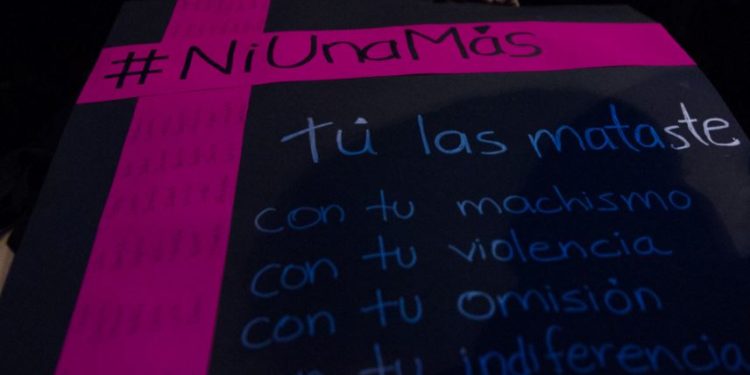 #NiUnaMás
Tú las mataste
con tu machismo
con tu violencia
con tu omisión
con tu indiferencia